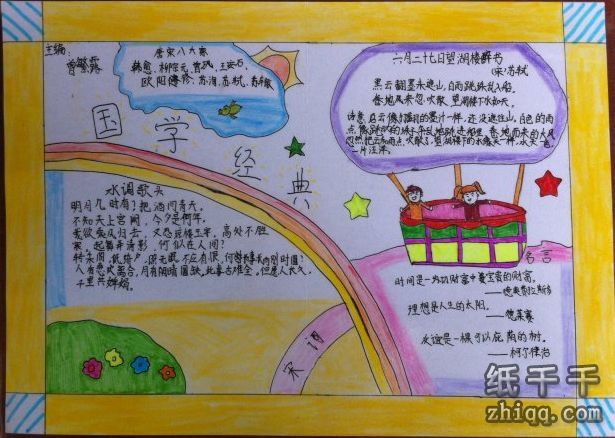 主编：
曾繁露
唐宋八大家
韩愈、柳宗元、曾巩、王安石、
欧阳修、苏洵、苏轼、苏辙
国学经典
六月二十七日望湖楼醉书
(宋)苏轼
黑云翻墨未遮山，白雨跳珠乱入船。
卷地风来忽吹散，望湖楼下水如天。
水调歌头
明月几时有？把酒问青天。
不知天上宫阙，今夕是何年。
我欲乘风归去，又恐琼楼玉宇，高处不胜
寒，起舞弄清影，何似在人间？
转朱阁，低绮户，照无眠。不应有恨，何事长向别时圆？
人有悲欢离合，月有阴晴圆缺，此事古难全，但愿人长久，
千里共婵娟。
宋词
名言
时间是一切财富中最宝贵的财富。
——德奥弗拉斯多
理想是人生的太阳。
——德莱赛
友谊是一棵可以庇荫的树。
——柯尔律治
纸千千
zhiqq.com